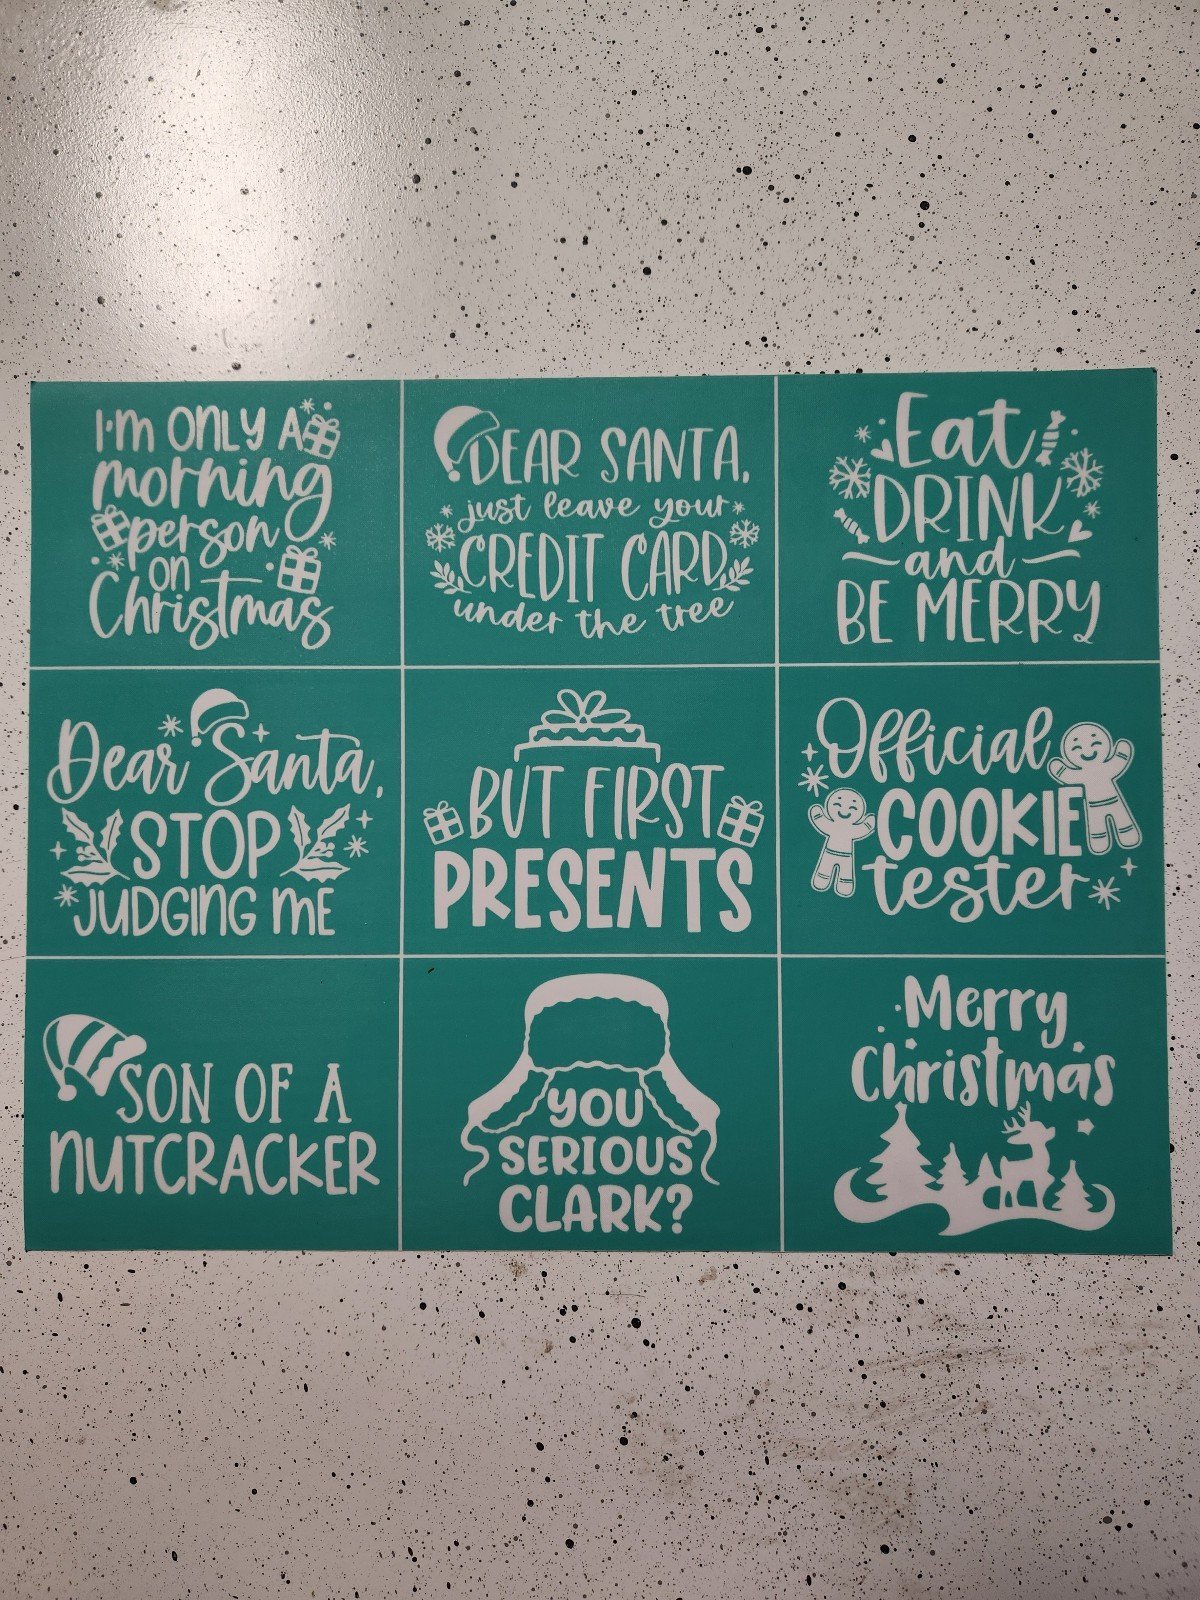 I'm ONLY A
morning
person
ON
Christmas
DEAR SANTA,
just leave your
CREDIT CARD
under the tree
Eat
DRINK
and
BE MERRY
Dear Santa,
STOP
JUDGING ME
BUT FIRST
PRESENTS
Official
COOKIE
tester
SON OF A
NUTCRACKER
YOU
SERIOUS
CLARK?
Merry
Christmas